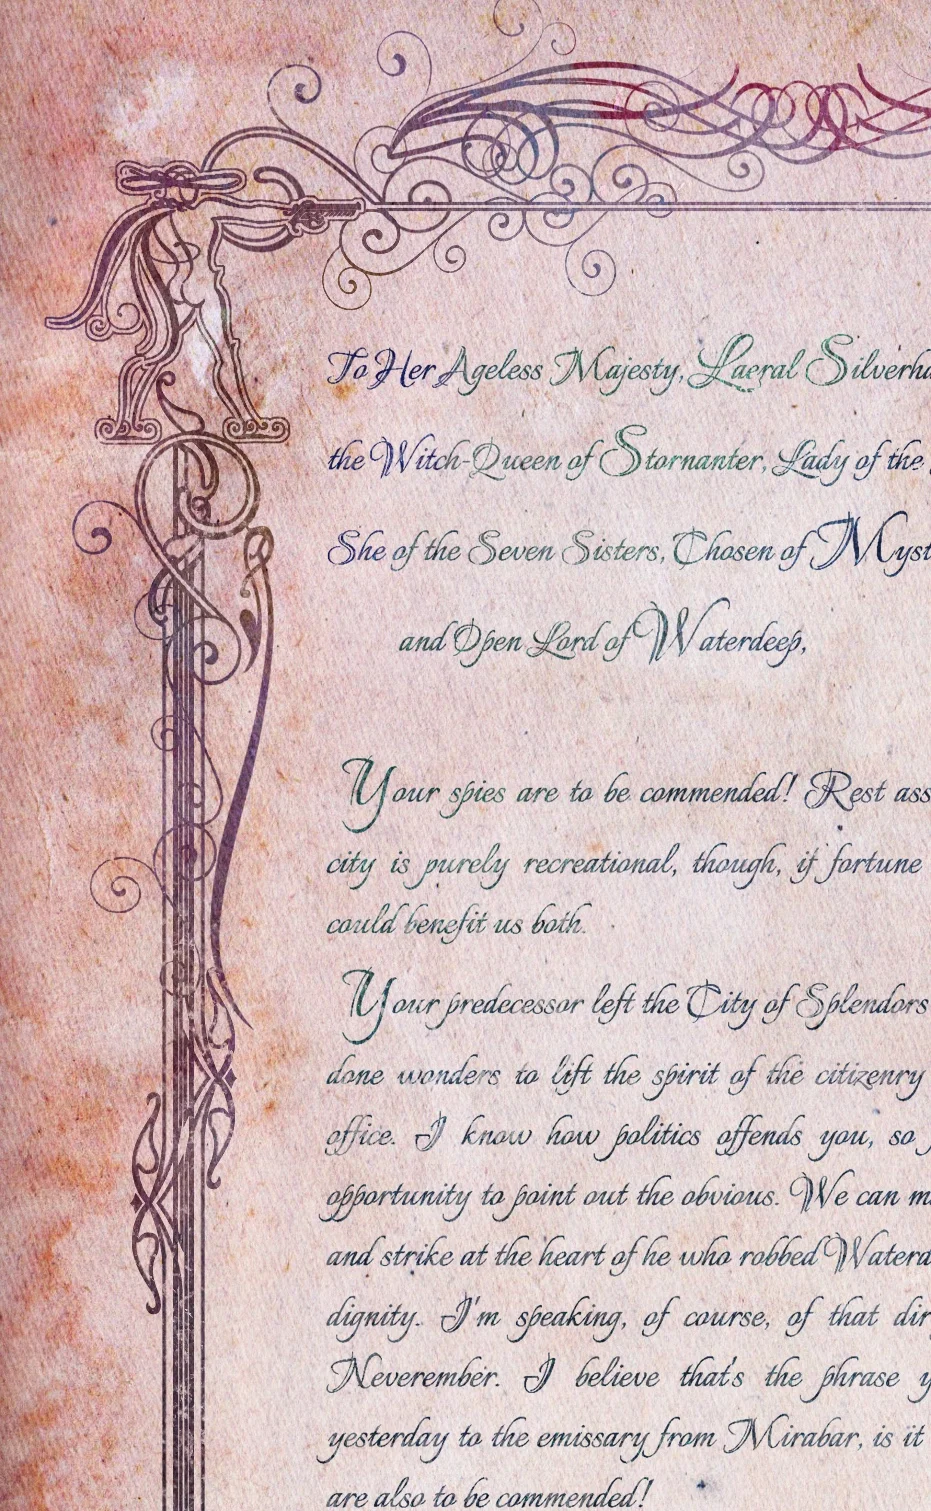 To Her Ageless Majesty, Laeral Silverha
the Witch-Queen of Stornanter, Lady of the
She of the Seven Sisters, Chosen of Myst
and Open Lord of Waterdeep,
Your spies are to be commended! Rest ass
city is purely recreational, though, if fortune
could benefit us both.
Your predecessor left the City of Splendors
done wonders to lift the spirit of the citizenry
office. I know how politics offends you, so
opportunity to point out the obvious. We can m
and strike at the heart of he who robbed Waterd
dignity. I'm speaking, of course, of that dir
Neverember. I believe that's the phrase y
yesterday to the emissary from Mirabar, is it
are also to be commended!